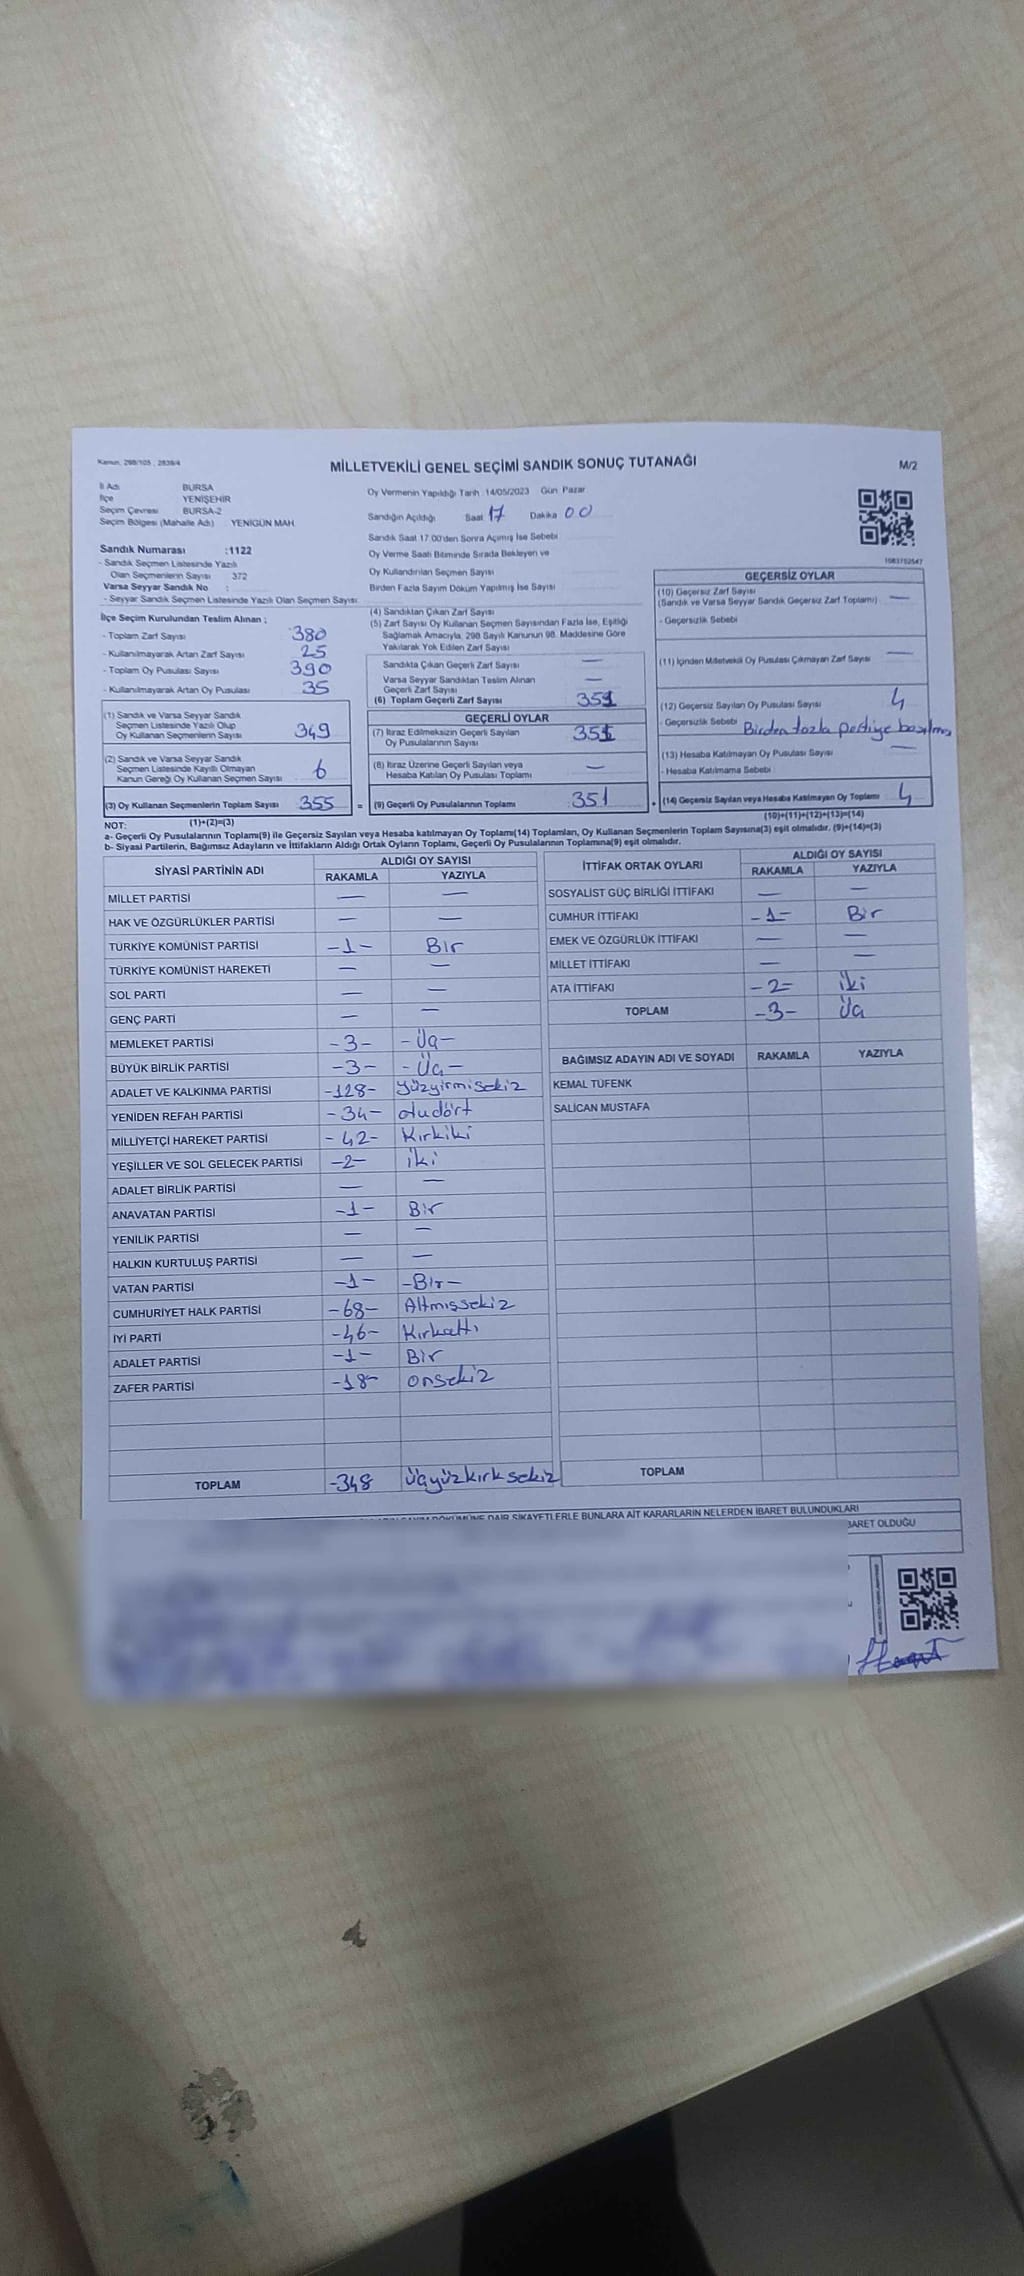 Kanun, 298/105 ; 2839/4
MİLLETVEKİLİ GENEL SEÇİMİ SANDIK SONUÇ TUTANAĞI
M/2
İl Adı BURSA
İlçe YENİŞEHİR
Seçim Çevresi BURSA-2
Seçim Bölgesi (Mahalle Adı) YENİGÜN MAH.
Sandık Numarası :1122
- Sandık Seçmen Listesinde Yazılı
Olan Seçmenlerin Sayısı 372
Varsa Seyyar Sandık No :
- Seyyar Sandık Seçmen Listesinde Yazılı Olan Seçmen Sayısı:
Oy Vermenin Yapıldığı Tarih 14/05/2023 Gün Pazar
Sandığın Açıldığı Saat 17 Dakika 00
Sandık Saat 17.00'den Sonra Açımış İse Sebebi
Oy Verme Saati Bitiminde Sırada Bekleyen ve
Oy Kullandırılan Seçmen Sayısı
Birden Fazla Sayım Döküm Yapılmış İse Sayısı
İlçe Seçim Kurulundan Teslim Alınan ;
- Toplam Zarf Sayısı 380
- Kullanılmayarak Artan Zarf Sayısı 25
- Toplam Oy Pusulası Sayısı 390
- Kullanılmayarak Artan Oy Pusulası 35
(1) Sandık ve Varsa Seyyar Sandık
Seçmen Listesinde Yazılı Olup
Oy Kullanan Seçmenlerin Sayısı 349
(2) Sandık ve Varsa Seyyar Sandık
Seçmen Listesinde Kayıtlı Olmayan
Kanun Gereği Oy Kullanan Seçmen Sayısı 6
(3) Oy Kullanan Seçmenlerin Toplam Sayısı 355 =
(4) Sandıktan Çıkan Zarf Sayısı
(5) Zarf Sayısı Oy Kullanan Seçmen Sayısından Fazla İse, Eşitliği
Sağlamak Amacıyla, 298 Sayılı Kanunun 98. Maddesine Göre
Yakılarak Yok Edilen Zarf Sayısı
Sandıkta Çıkan Geçerli Zarf Sayısı —
Varsa Seyyar Sandıktan Teslim Alınan
Geçerli Zarf Sayısı —
(6) Toplam Geçerli Zarf Sayısı 351
GEÇERLİ OYLAR
(7) İtiraz Edilmeksizin Geçerli Sayılan
Oy Pusulalarının Sayısı 351
(8) İtiraz Üzerine Geçerli Sayılan veya
Hesaba Katılan Oy Pusulası Toplamı —
(9) Geçerli Oy Pusulalarının Toplamı 351 +
1083702547
GEÇERSİZ OYLAR
(10) Geçersiz Zarf Sayısı —
(Sandık ve Varsa Seyyar Sandık Geçersiz Zarf Toplamı)
- Geçersizlik Sebebi
(11) İçinden Milletvekili Oy Pusulası Çıkmayan Zarf Sayısı —
(12) Geçersiz Sayılan Oy Pusulası Sayısı 4
- Geçersizlik Sebebi Birden fazla partiye basılma
(13) Hesaba Katılmayan Oy Pusulası Sayısı —
- Hesaba Katılmama Sebebi
(14) Geçersiz Sayılan veya Hesaba Katılmayan Oy Toplamı 4
NOT: (1)+(2)=(3) (10)+(11)+(12)+(13)=(14)
a- Geçerli Oy Pusulalarının Toplamı(9) ile Geçersiz Sayılan veya Hesaba katılmayan Oy Toplamı(14) Toplamları, Oy Kullanan Seçmenlerin Toplam Sayısına(3) eşit olmalıdır. (9)+(14)=(3)
b- Siyasi Partilerin, Bağımsız Adayların ve İttifakların Aldığı Ortak Oyların Toplamı, Geçerli Oy Pusulalarının Toplamına(9) eşit olmalıdır.
SİYASİ PARTİNİN ADI ALDIĞI OY SAYISI
RAKAMLA YAZIYLA
MİLLET PARTİSİ — —
HAK VE ÖZGÜRLÜKLER PARTİSİ — —
TÜRKİYE KOMÜNİST PARTİSİ -1- Bir
TÜRKİYE KOMÜNİST HAREKETİ — —
SOL PARTİ — —
GENÇ PARTİ — —
MEMLEKET PARTİSİ -3- -Üç-
BÜYÜK BİRLİK PARTİSİ -3- -Üç-
ADALET VE KALKINMA PARTİSİ -128- Yüzyirmisekiz
YENİDEN REFAH PARTİSİ -34- otudört
MİLLİYETÇİ HAREKET PARTİSİ -42- Kırkiki
YEŞİLLER VE SOL GELECEK PARTİSİ -2- iki
ADALET BİRLİK PARTİSİ — —
ANAVATAN PARTİSİ -1- Bir
YENİLİK PARTİSİ — —
HALKIN KURTULUŞ PARTİSİ — —
VATAN PARTİSİ -1- -Bir-
CUMHURİYET HALK PARTİSİ -68- Altmışsekiz
İYİ PARTİ -46- Kırkaltı
ADALET PARTİSİ -1- Bir
ZAFER PARTİSİ -18- onsekiz
TOPLAM -348 üçyüzkırksekiz
İTTİFAK ORTAK OYLARI ALDIĞI OY SAYISI
RAKAMLA YAZIYLA
SOSYALİST GÜÇ BİRLİĞİ İTTİFAKI — —
CUMHUR İTTİFAKI -1- Bir
EMEK VE ÖZGÜRLÜK İTTİFAKI — —
MİLLET İTTİFAKI — —
ATA İTTİFAKI -2- iki
TOPLAM -3- Üç
BAĞIMSIZ ADAYIN ADI VE SOYADI RAKAMLA YAZIYLA
KEMAL TÜFENK
SALİCAN MUSTAFA
TOPLAM
DÖKÜMÜNE DAİR ŞİKAYETLERLE BUNLARA AİT KARARLARIN NELERDEN İBARET BULUNDUKLARI
İBARET OLDUĞU